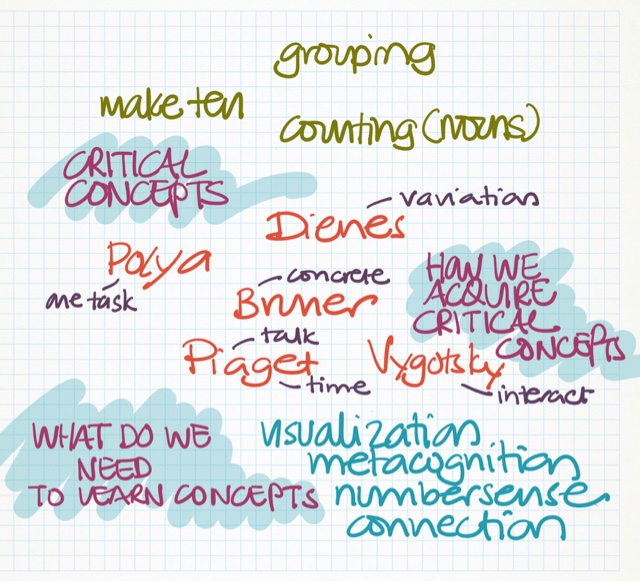 grouping
make ten
counting (nouns)
CRITICAL
CONCEPTS
variation
Dienes
Polya
one task
concrete
Bruner
HOW WE
ACQUIRE
CRITICAL
CONCEPTS
talk
Piaget
time
Vygotsky
interact
WHAT DO WE
NEED
TO LEARN CONCEPTS
visualization
metacognition
numbersense
connection